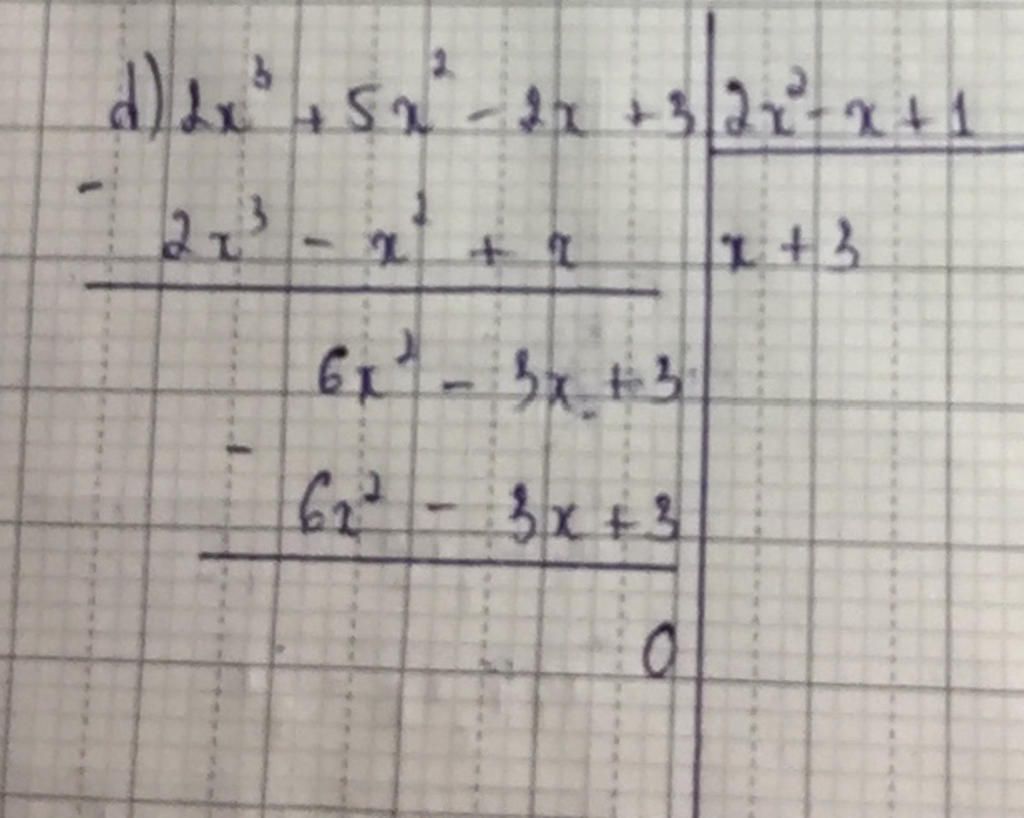 d) 2x³ + 5x² - 2x + 3 | 2x² - x + 1
-
2x³ - x² + x | x + 3
6x² - 3x + 3
-
6x² - 3x + 3
0